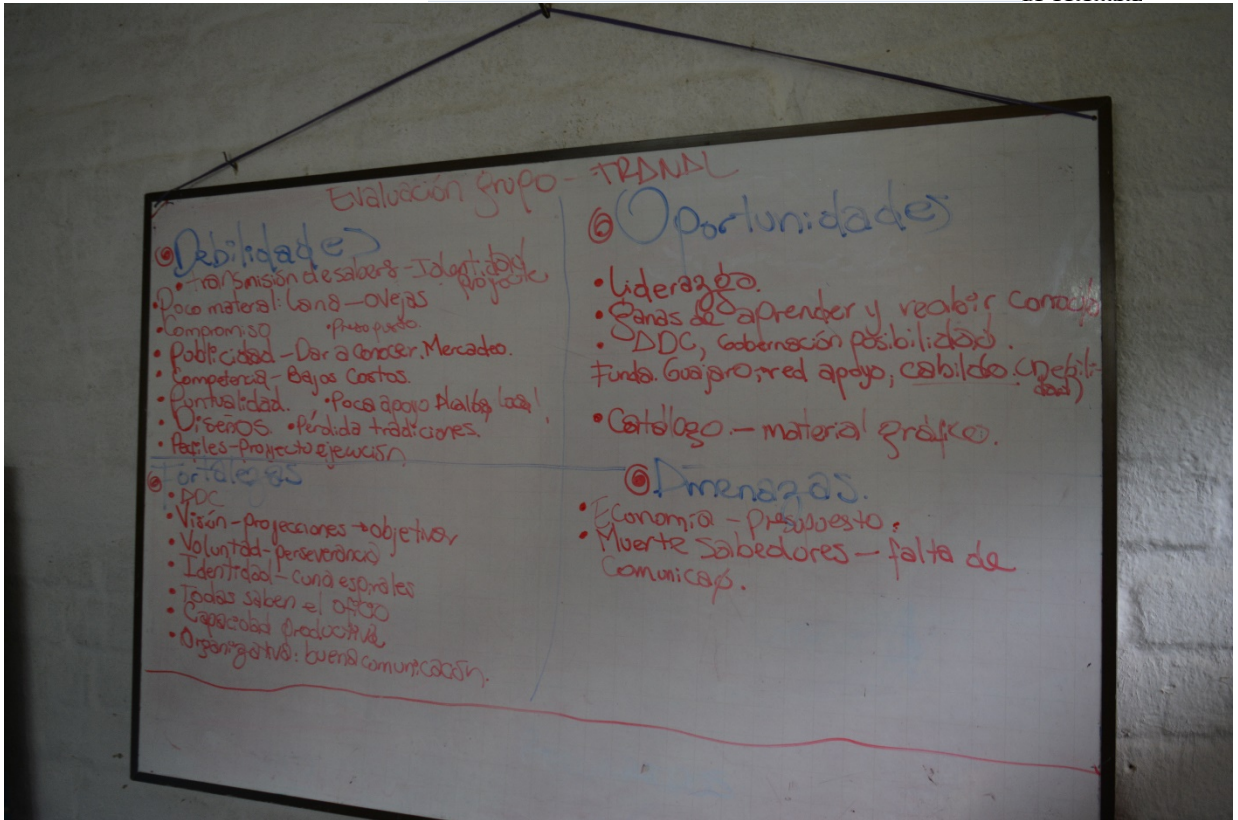 de Colombia
Evaluación grupo - TRANAL
Debilidades
• transmisión de saberes - Identidad
proyecto
• Poco material: Lana - ovejas
• Compromiso • Presupuesto.
• Publicidad - Dar a conocer. Mercadeo.
• Competencia - Bajos Costos.
• Puntualidad. • Poca apoyo Alcaldía Local
• Diseños. • Pérdida tradiciones.
• Perfiles - Proyecto ejecución
Fortalezas
• ADC
• Visión - proyecciones → objetivos
• Voluntad - perseverancia
• Identidad - espirales
• Todas saben el oficio
• Capacidad productiva
• Organizativa: buena comunicación.
Oportunidades
• Liderazgo.
• Ganas de aprender y recibir
• ADC, Gobernación posibilidad.
Funda. Guajaro, red apoyo, cabildo (Debili-
dad)
• Catálogo. - material gráfico.
Amenazas.
• Economía - Presupuesto.
• Muerte Sabedores - falta de